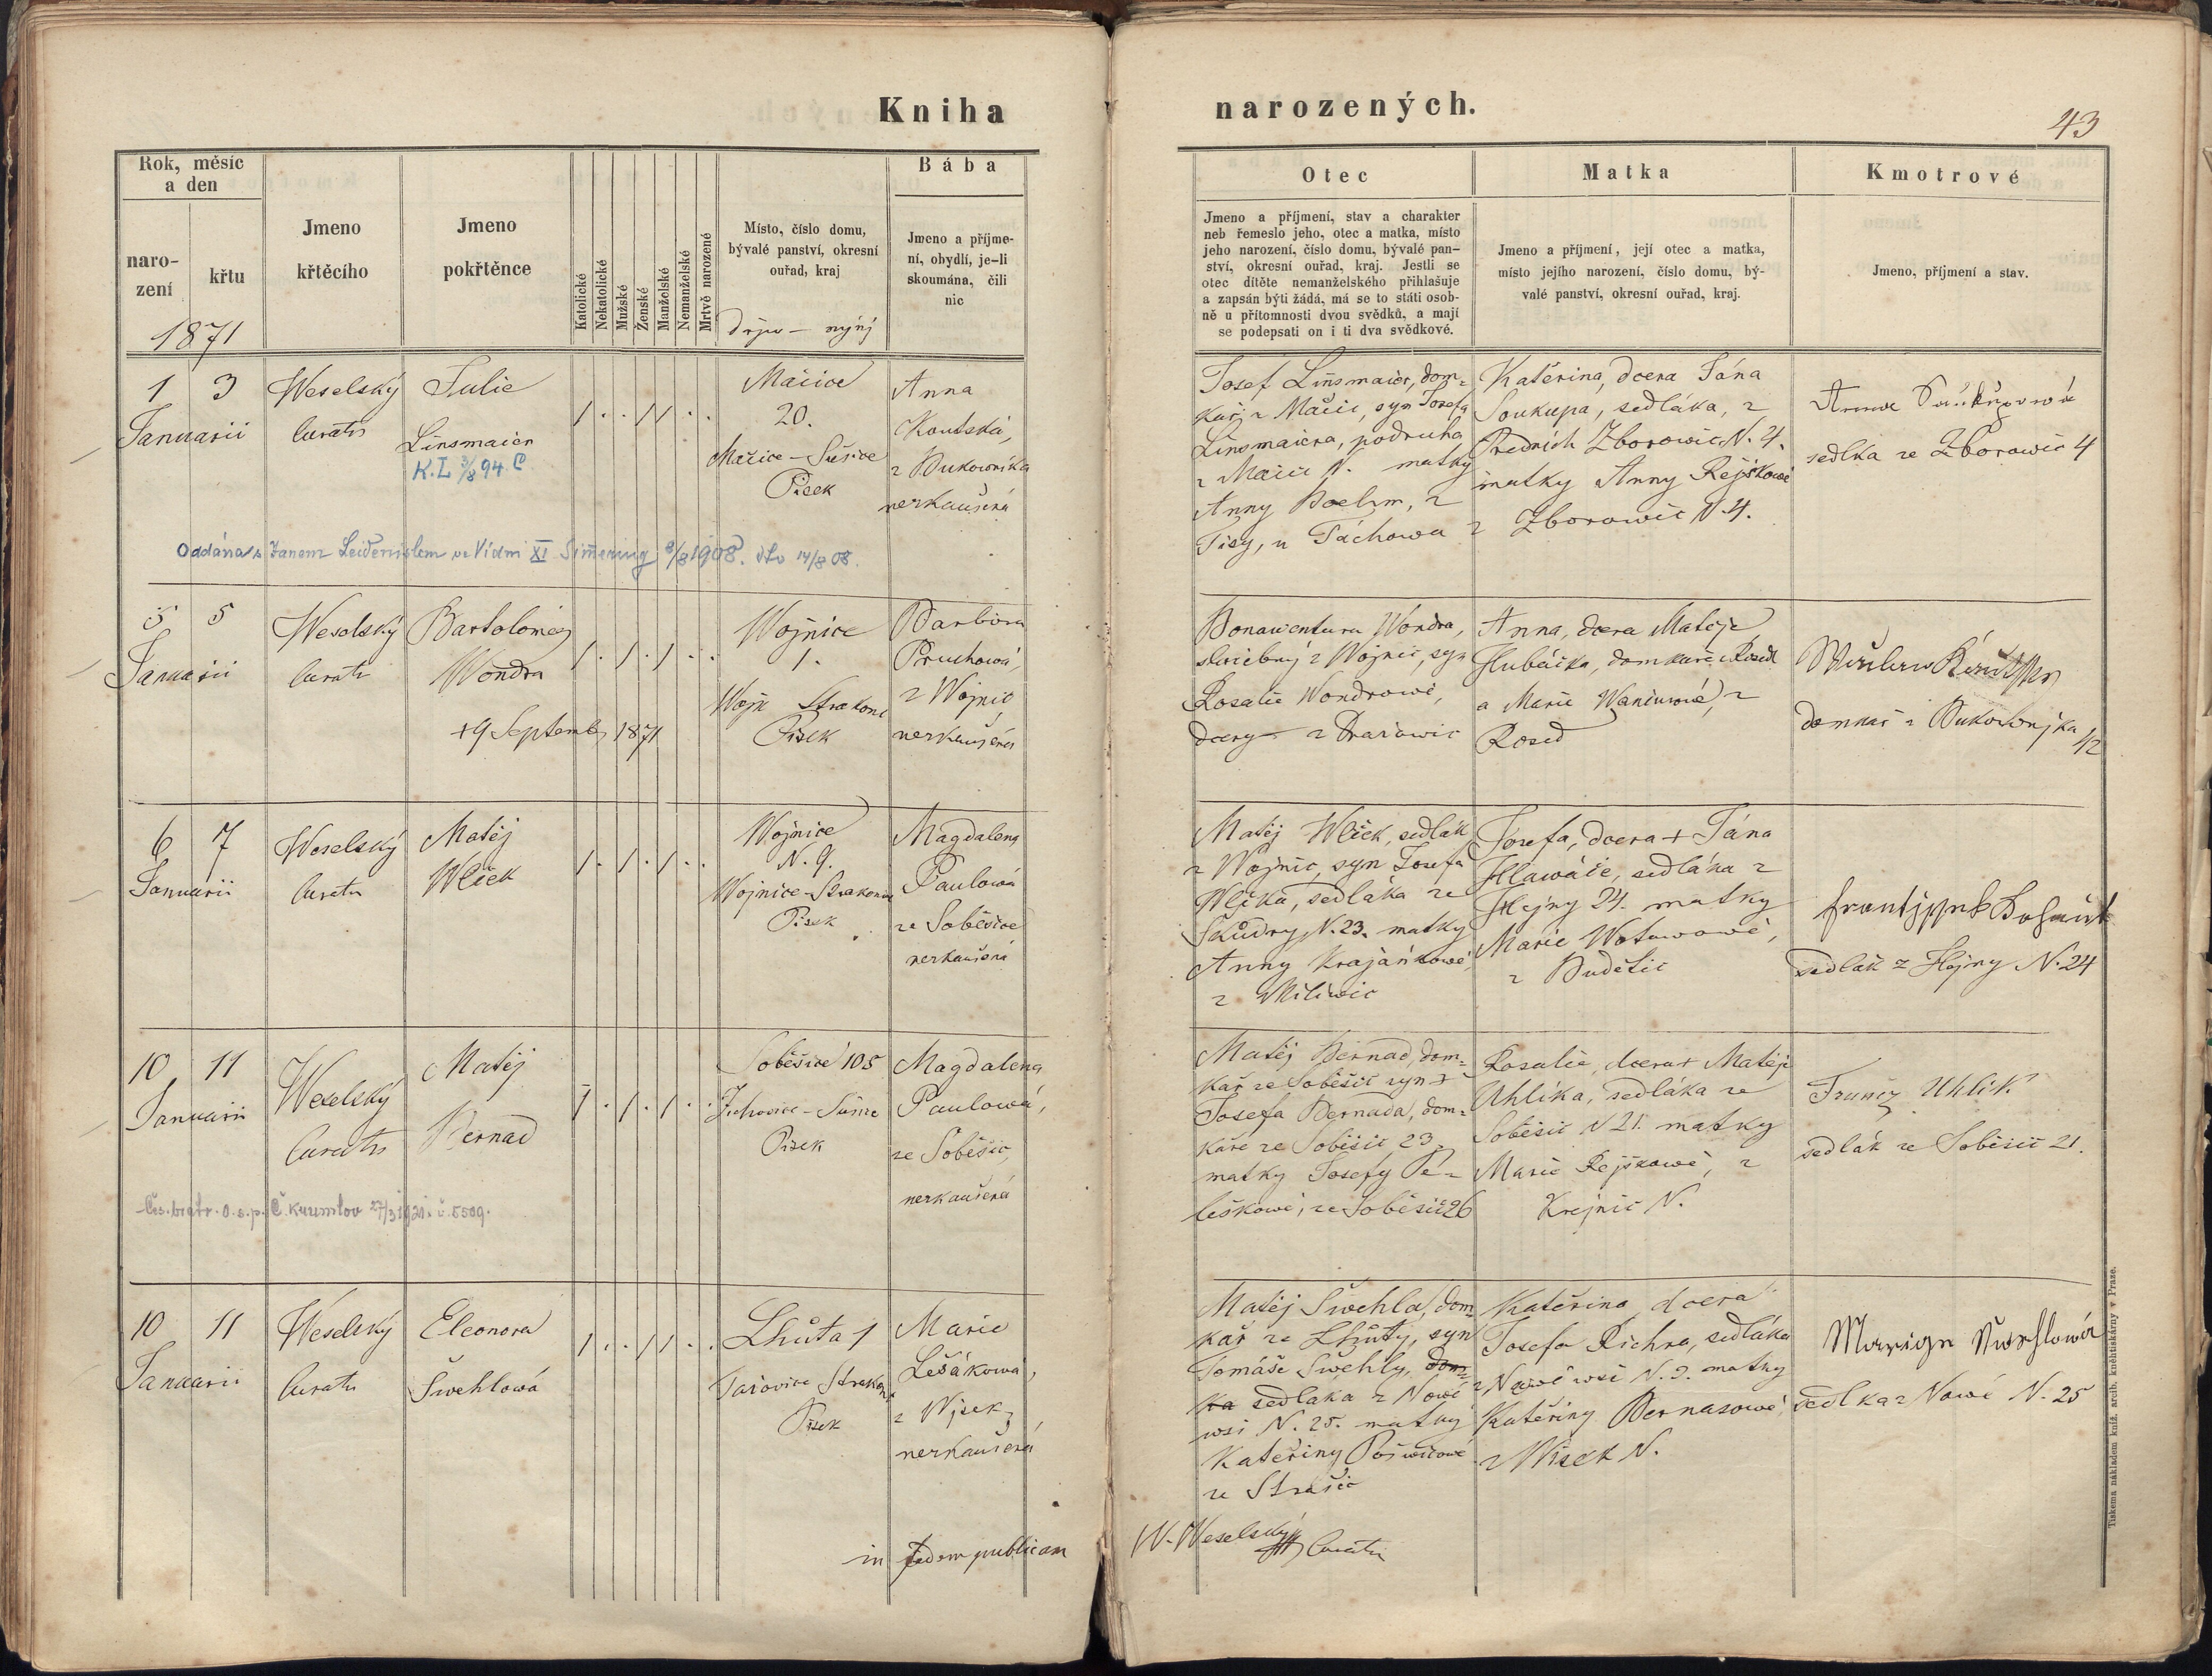 Kniha
narozených.
43
Rok, měsíc
a den
naro-
zení
křtu
1871
Jmeno
křtěcího
Jmeno
pokřtěnce
Katolické
Nekatolické
Mužské
Ženské
Manželské
Nemanželské
Mrtvě narozené
Místo, číslo domu,
bývalé panství, okresní
ouřad, kraj
Bába
Jmeno a příjme-
ní, obydlí, je-li
skoumána, čili
nic
Otec
Jmeno a příjmení, stav a charakter
neb řemeslo jeho, otec a matka, místo
jeho narození, číslo domu, bývalé pan-
ství, okresní ouřad, kraj. Jestli se
otec dítěte nemanželského přihlašuje
a zapsán býti žádá, má se to státi osob-
ně u přítomnosti dvou svědků, a mají
se podepsati on i ti dva svědkové.
Matka
Jmeno a příjmení, její otec a matka,
místo jejího narození, číslo domu, bý-
valé panství, okresní ouřad, kraj.
Kmotrové
Jmeno, příjmení a stav.
1 3
Januarii
Weselský
Curatus
Julie
Linsmaier
K.L. 3/8 94. C
Mačice
20.
Mačice - Sušice
Písek
Anna
Koutská,
z Bukovníka
nezkoušená
Josef Linsmaier, dom=
kář z Mačic, syn Josefa
Linsmaiera, podruha
z Mačic N. matky
Anny Boehm, z
Tisy, u Táchowa
Kateřina, dcera Jána
Soukupa, sedláka, z
Zborowic N. 4.
matky Anny Rejškowé
z Zborowic N. 4.
Anna
sedlka ze Zborowic 4
Oddána s Janem ve Vídni XI Simering 8/8 1908. dto 14/8 08.
5 5
Januarii
Weselský
Curatus
Bartoloměj
Wondra
+ 9 September 1871
Wojnice
1.
Wojn Strakonic
Písek
Barbora
Pruchowá,
z Wojnic
nezkaušená
Bonawentura Wondra,
služebný z Wojnic, syn
Rosalie Wondrowé,
dcery z Dražowic
Anna, dcera Matěje
Hubáčka, domkáře z Rosed
a Marie Waniurowé, z
Rosed
domkář z Bukownjka
42
6 7
Januarii
Weselský
Curatus
Matěj
Wlček
Wojnice
N. 9.
Wojnice - Strakonice
Písek
Magdalena
Paulowá
ze Soběšice
nezkaušená
Matěj Wlček, sedlák
z Wojnic, syn Josefa
Wlčka, sedláka ze
Škůdry N. 23. matky
Anny Krajánkowé,
z Miliwic
Josefa, dcera + Jána
Hlawáče, sedláka z
Hejny 24. matky
Marie Wotawowé,
z Budětic
Frantjssek
sedlák z Hejny N. 24
10 11
Januarii
Weselský
Curatus
Matěj
Bernad
Soběšice 105
Žichovice - Sušice
Písek
Magdalena
Paulowá,
ze Soběšic,
nezkaušená
Matěj Bernad, dom=
kář ze Soběšic syn +
Josefa Bernada, dom=
káře ze Soběšic 23
matky Josefy Pe=
leškowé, ze Soběšic 26
Rosalie, dcera + Matěje
Uhlíka, sedláka ze
Soběšic N 21. matky
Marie Rejškowé, z
Krejnic N.
Franc Uhlík
sedlák ze Soběšic 21.
Čes. bratr. o. s. p. Č. Krumlov 27/3 1921. č. 5509.
10 11
Januarii
Weselský
Curatus
Eleonora
Šwehlowá
Lhůta 1
Strakon
Písek
Marie
Lešákowá,
z Wjsek,
nezkaušená
Matěj Šwehla, dom=
kář ze Lhůty, syn
Tomáše Šwehly, dom=
ka sedláka z Nowé
wsi N. 25. matky
Kateřiny
ze Strašic
Kateřina dcera
Josefa Richra, sedláka
z Nowé wsi N. 9. matky
Kateřiny Bernasowé,
z Wísek N.
Marign Šwehlowá
sedlka z Nowé N. 25
in fidem publicam
W. Weselský Curatus
Tiskema nákladem kníž. arcib. kněhtiskárny v Praze.